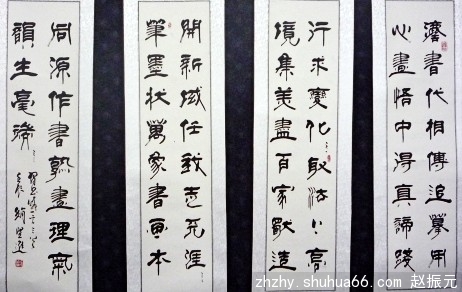 書代相傳追摹用
心畫悟中得真諦跨
行求變化取法高
境集美盡百家獻造
開新域任我志无涯
筆墨狀萬象書画本
同源作書熟畫理氣
韻生毫
zhzhy.shuhua66.com 赵振元